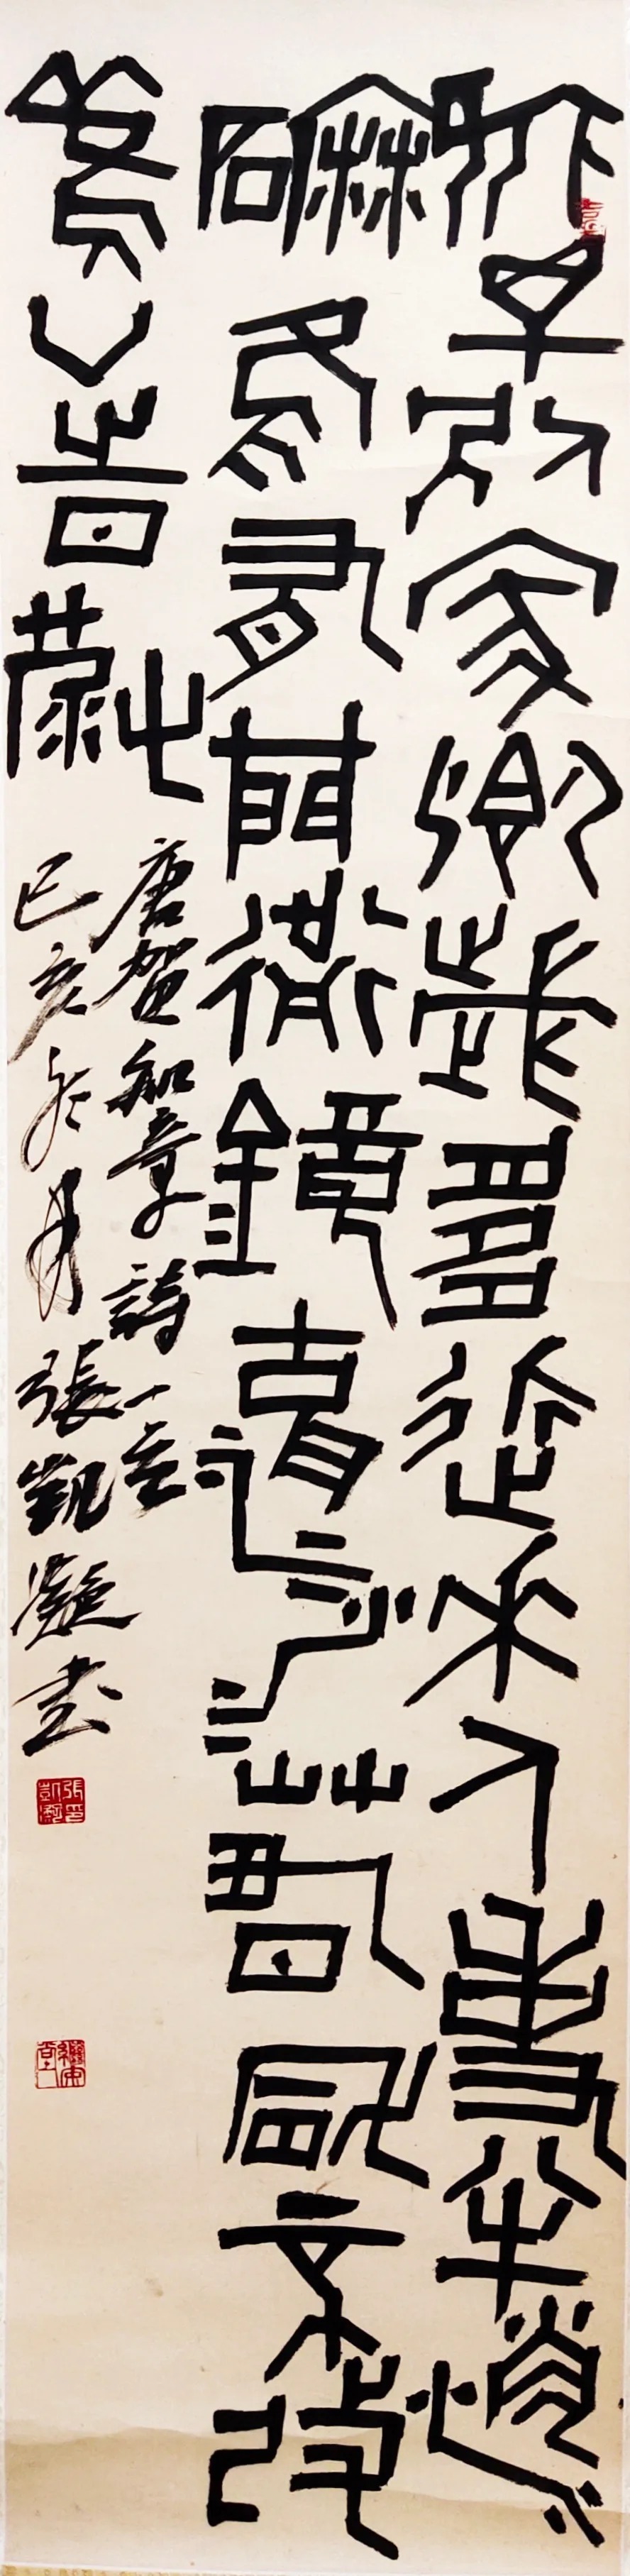 離別家鄉歲多近來人事半消
磨惟有門前鏡湖水春風不改
舊時波
唐賀知章詩一首
己亥冬月張凱凝書